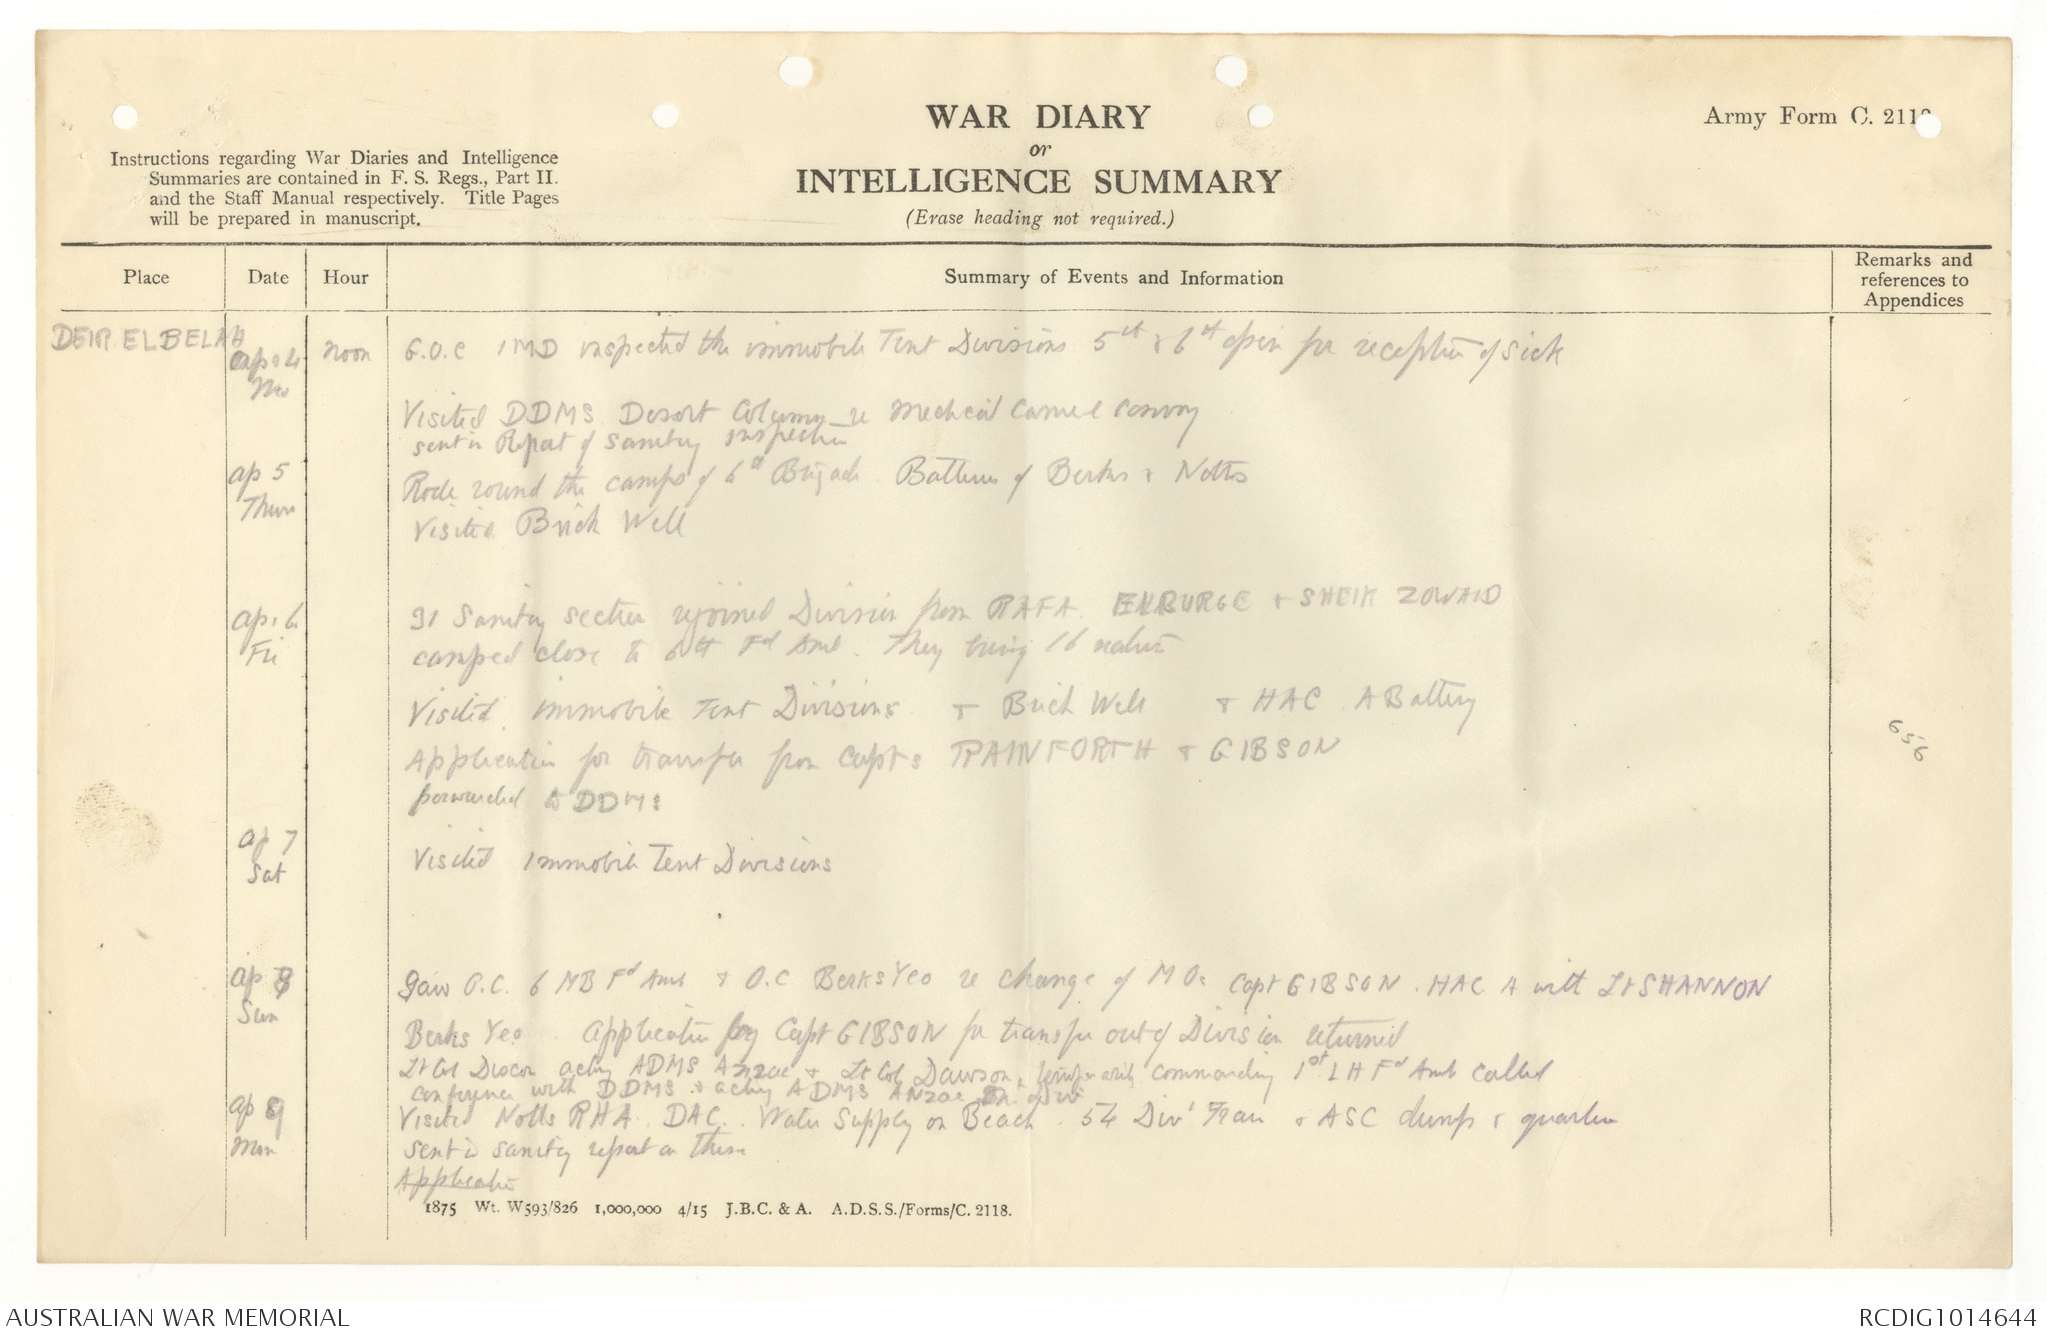 WAR DIARY
or
INTELLIGENCE SUMMARY
(Erase heading not required.)
Army Form C. 2118
Instructions regarding War Diaries and Intelligence
Summaries are contained in F. S. Regs., Part II.
and the Staff Manual respectively. Title Pages
will be prepared in manuscript.
Place Date Hour Summary of Events and Information Remarks and references to Appendices
DEIR EL BELAH
Apr 4 noon G.O.C IMD inspected the immobile Tent Divisions 5th & 6th open for reception of sick
Visited DDMS Desert Column re Medical Camel Convoy
sent in Report of Sanitary inspection
Ap 5 Rode round the camps of 6th Brigade. Batteries of Berks & Notts
Thur Visited Brick Well
Apr 6 91 Sanitary section rejoined Division from RAFA EL BURGE & SHEIK ZOWAID
Fri camped close to 6th Fd Amb. They bring 16 natives
Visited immobile Tent Divisions & Brick Well & HAC A Battery
Application for transfer from Capts RAINFORTH & GIBSON
forwarded to DDMS
Ap 7
Sat Visited Immobile Tent Divisions
Ap 8 Saw O.C. 6 MB Fd Amb & O.C Berks Yeo re change of MOs Capt GIBSON. HAC A with Lt SHANNON
Sun Berks Yeo. Application by Capt GIBSON for transfer out of Division returned
Lt Col Dixon acting ADMS Anzac & Lt Col Dawson, temporarily commanding 1st LH Fd Amb called
conference with DDMS & acting ADMS ANZAC
Ap 9 Visited Notts RHA. DAC. Water Supply on Beach. 54 Div Train & ASC dump & quarters
Mon sent in sanitary report on these
Application
656
1875 Wt. W593/826 1,000,000 4/15 J.B.C. & A. A.D.S.S./Forms/C. 2118.
AUSTRALIAN WAR MEMORIAL
RCDIG1014644